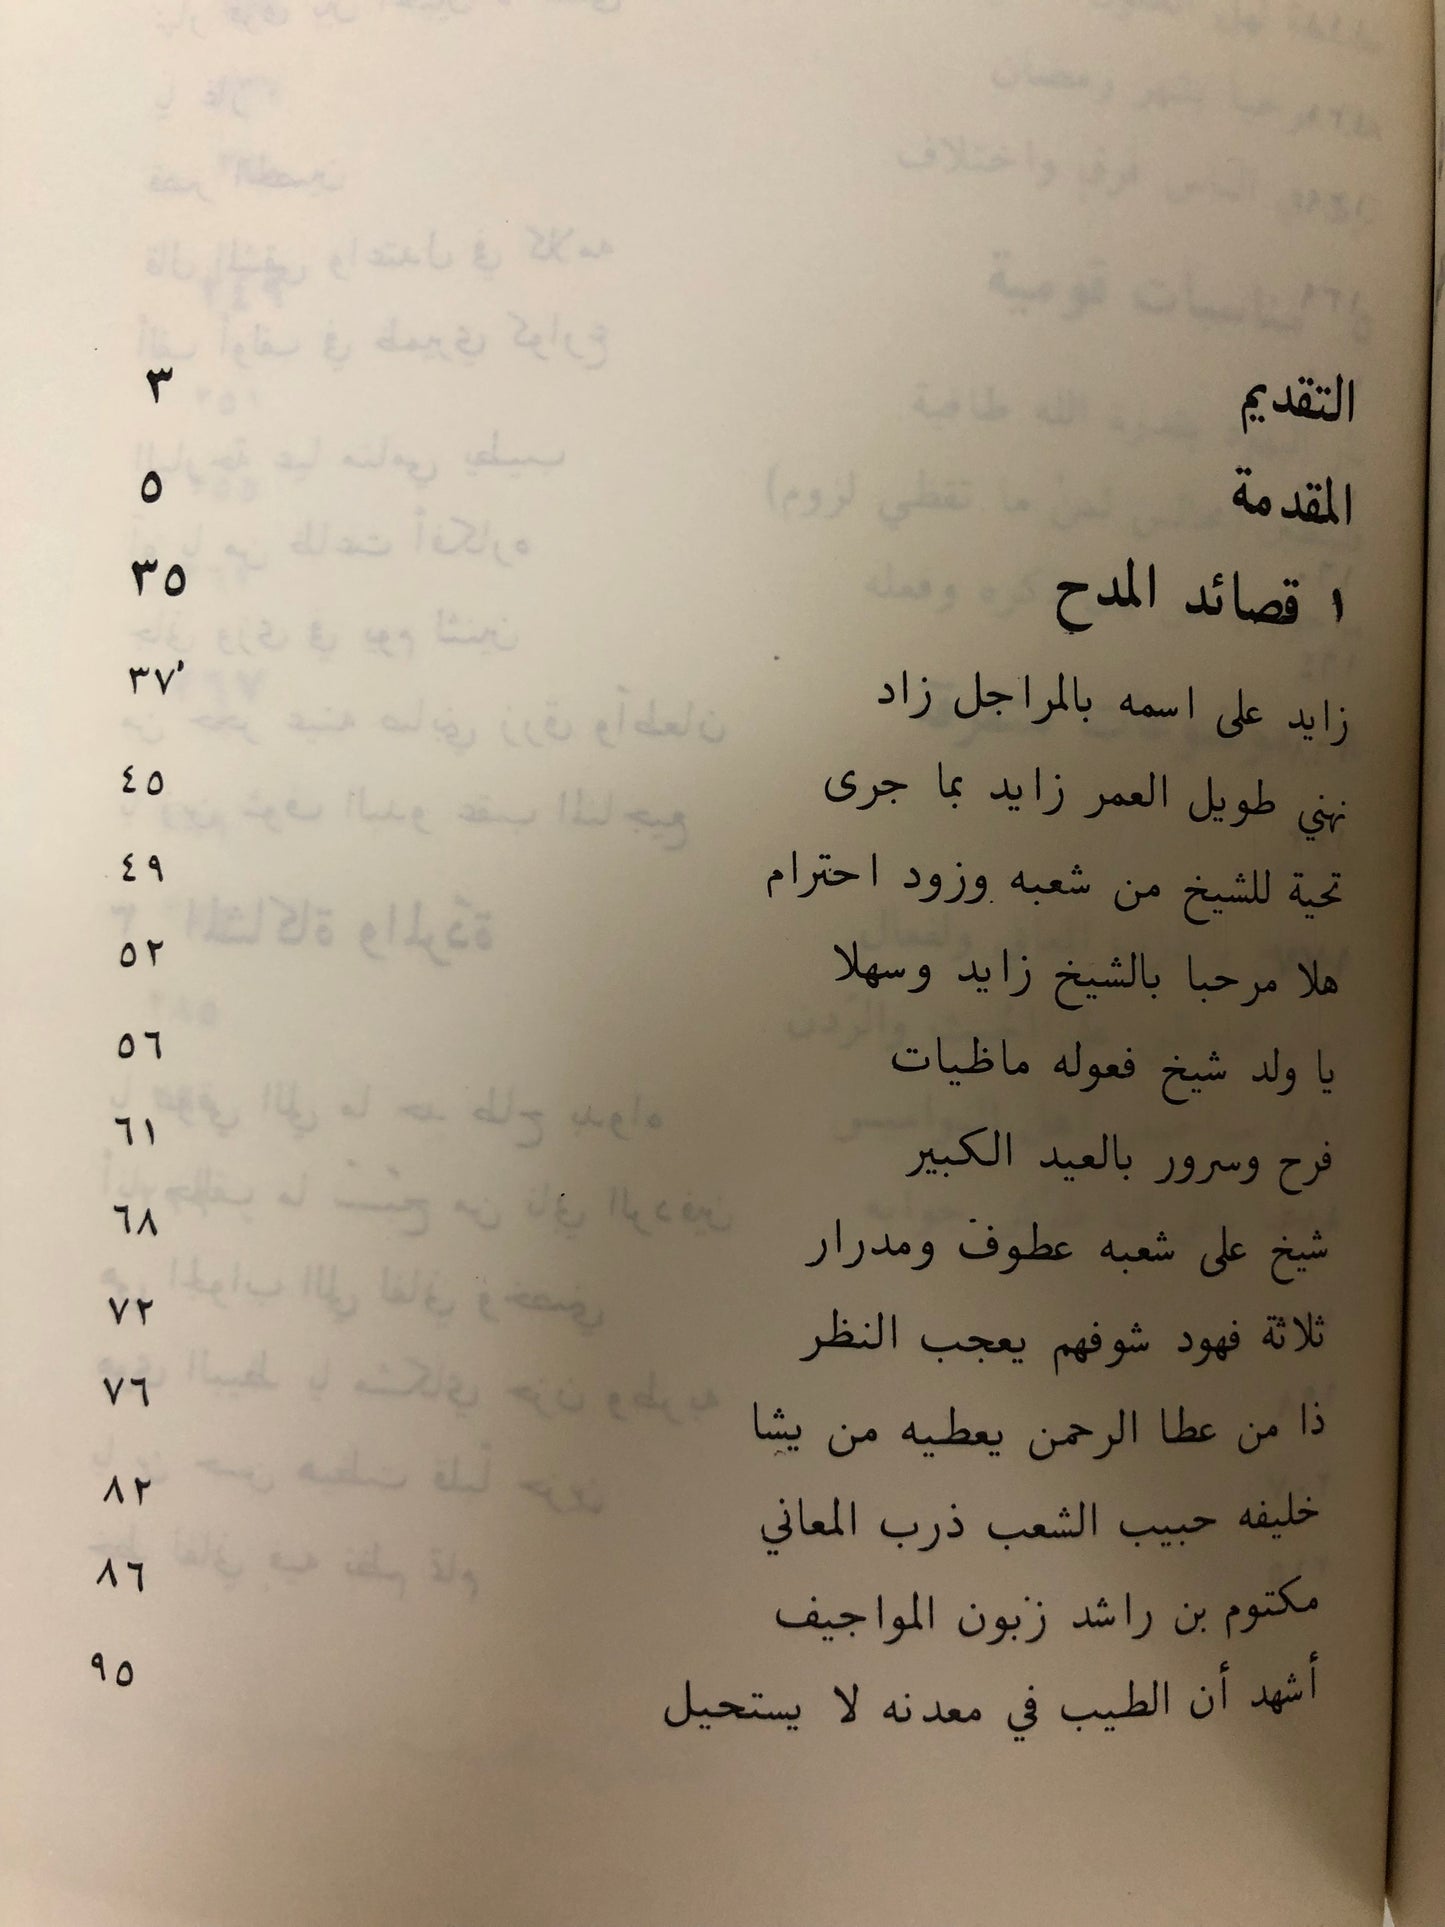 التقديم ٣
المقدمة ٥
١ قصائد المدح ٣٥
زايد على اسمه بالمراجل زاد ٣٧
نهني طويل العمر زايد بما جرى ٤٥
تحية للشيخ من شعبه وزود احترام ٤٩
هلا مرحبا بالشيخ زايد وسهلا ٥٢
يا ولد شيخ فعوله ماظيات ٥٦
فرح وسرور بالعيد الكبير ٦١
شيخ على شعبه عطوف ومدرار ٦٨
ثلاثة فهود شوفهم يعجب النظر ٧٢
ذا من عطا الرحمن يعطيه من يشا ٧٦
خليفه حبيب الشعب ذرب المعاني ٨٢
مكتوم بن راشد زبون المواجيف ٨٦
أشهد أن الطيب في معدنه لا يستحيل ٩٥